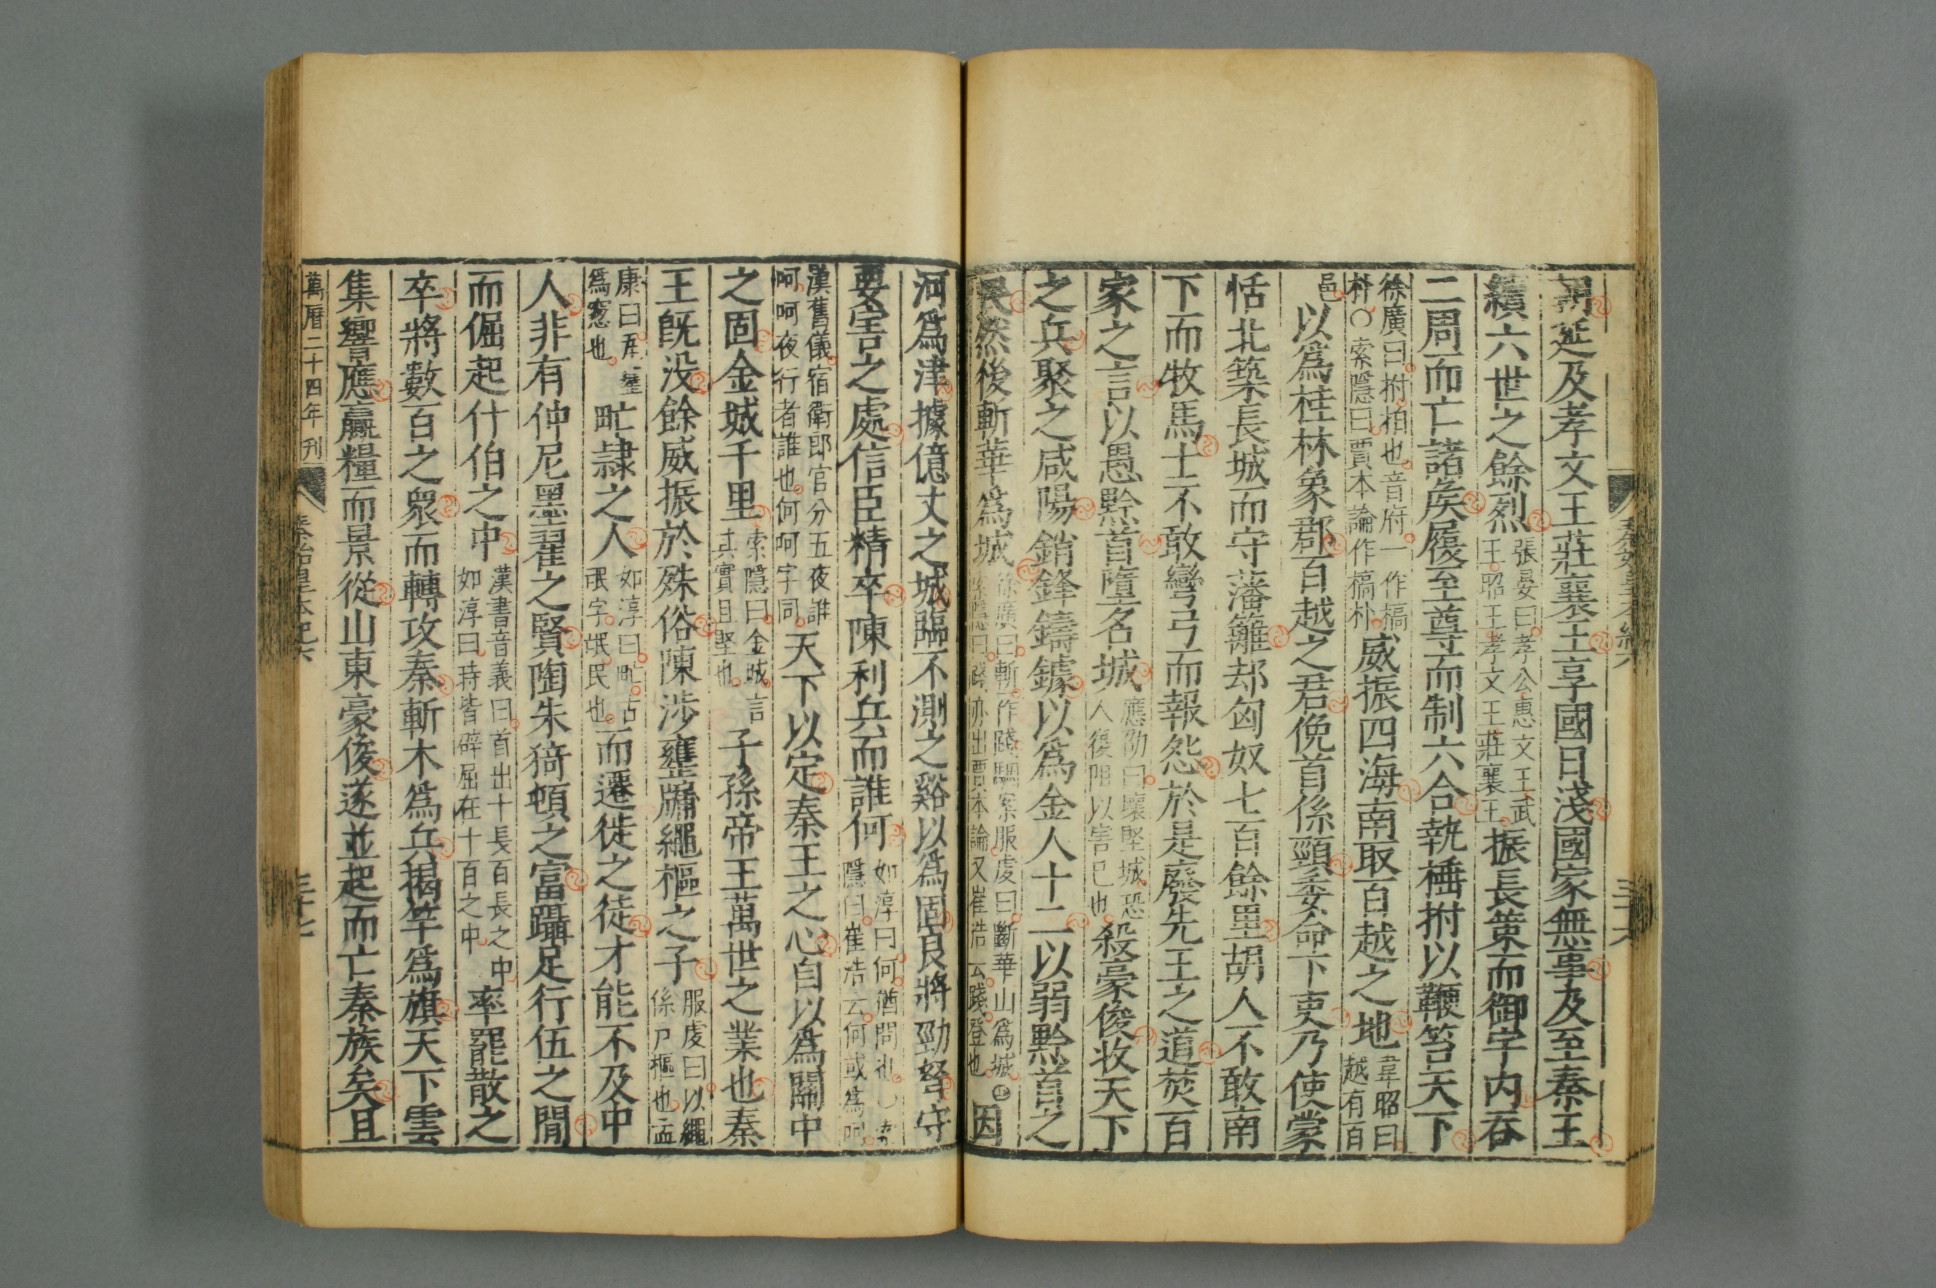 朝延及孝文王莊襄王享國日淺國家無事及至秦王
續六世之餘烈張晏曰孝公惠文王武王昭王孝文王莊襄王振長策而御宇內吞
二周而亡諸侯履至尊而制六合執棰拊以鞭笞天下
徐廣曰拊拍也音府一作槁朴○索隱曰賈本論作槁朴威振四海南取百越之地韋昭曰越有百
邑以爲桂林象郡百越之君俛首係頸委命下吏乃使蒙
恬北築長城而守藩籬却匈奴七百餘里胡人不敢南
下而牧馬士不敢彎弓而報怨於是廢先王之道焚百
家之言以愚黔首墮名城應劭曰壞堅城恐人復阻以害己也殺豪俊收天下
之兵聚之咸陽銷鋒鑄鐻以爲金人十二以弱黔首之
民然後斬華爲城徐廣曰斬一作踐駰案服虔曰斷華山爲城索隱曰踐亦出賈本論又崔浩云踐登也因
河爲津據億丈之城臨不測之谿以爲固良將勁弩守
要害之處信臣精卒陳利兵而誰何如淳曰何猶問也○索隱曰崔浩云何或爲呵
漢舊儀宿衛郎官分五夜誰呵呵夜行者誰也何呵字同天下以定秦王之心自以爲關中
之固金城千里索隱曰金城言其實且堅也子孫帝王萬世之業也秦
王既没餘威振於殊俗陳涉甕牖繩樞之子服虔曰以繩係戶樞也孟
康曰瓦甕爲窓也甿隷之人如淳曰甿古氓字氓民也而遷徙之徒才能不及中
人非有仲尼墨翟之賢陶朱猗頓之富躡足行伍之閒
而倔起什伯之中漢書音義曰首出十長百長之中如淳曰時皆辟屈在十百之中率罷散之
卒將數百之衆而轉攻秦斬木爲兵揭竿爲旗天下雲
集響應贏糧而景從山東豪俊遂並起而亡秦族矣且
萬曆二十四年刊 秦始皇本紀六 三十七